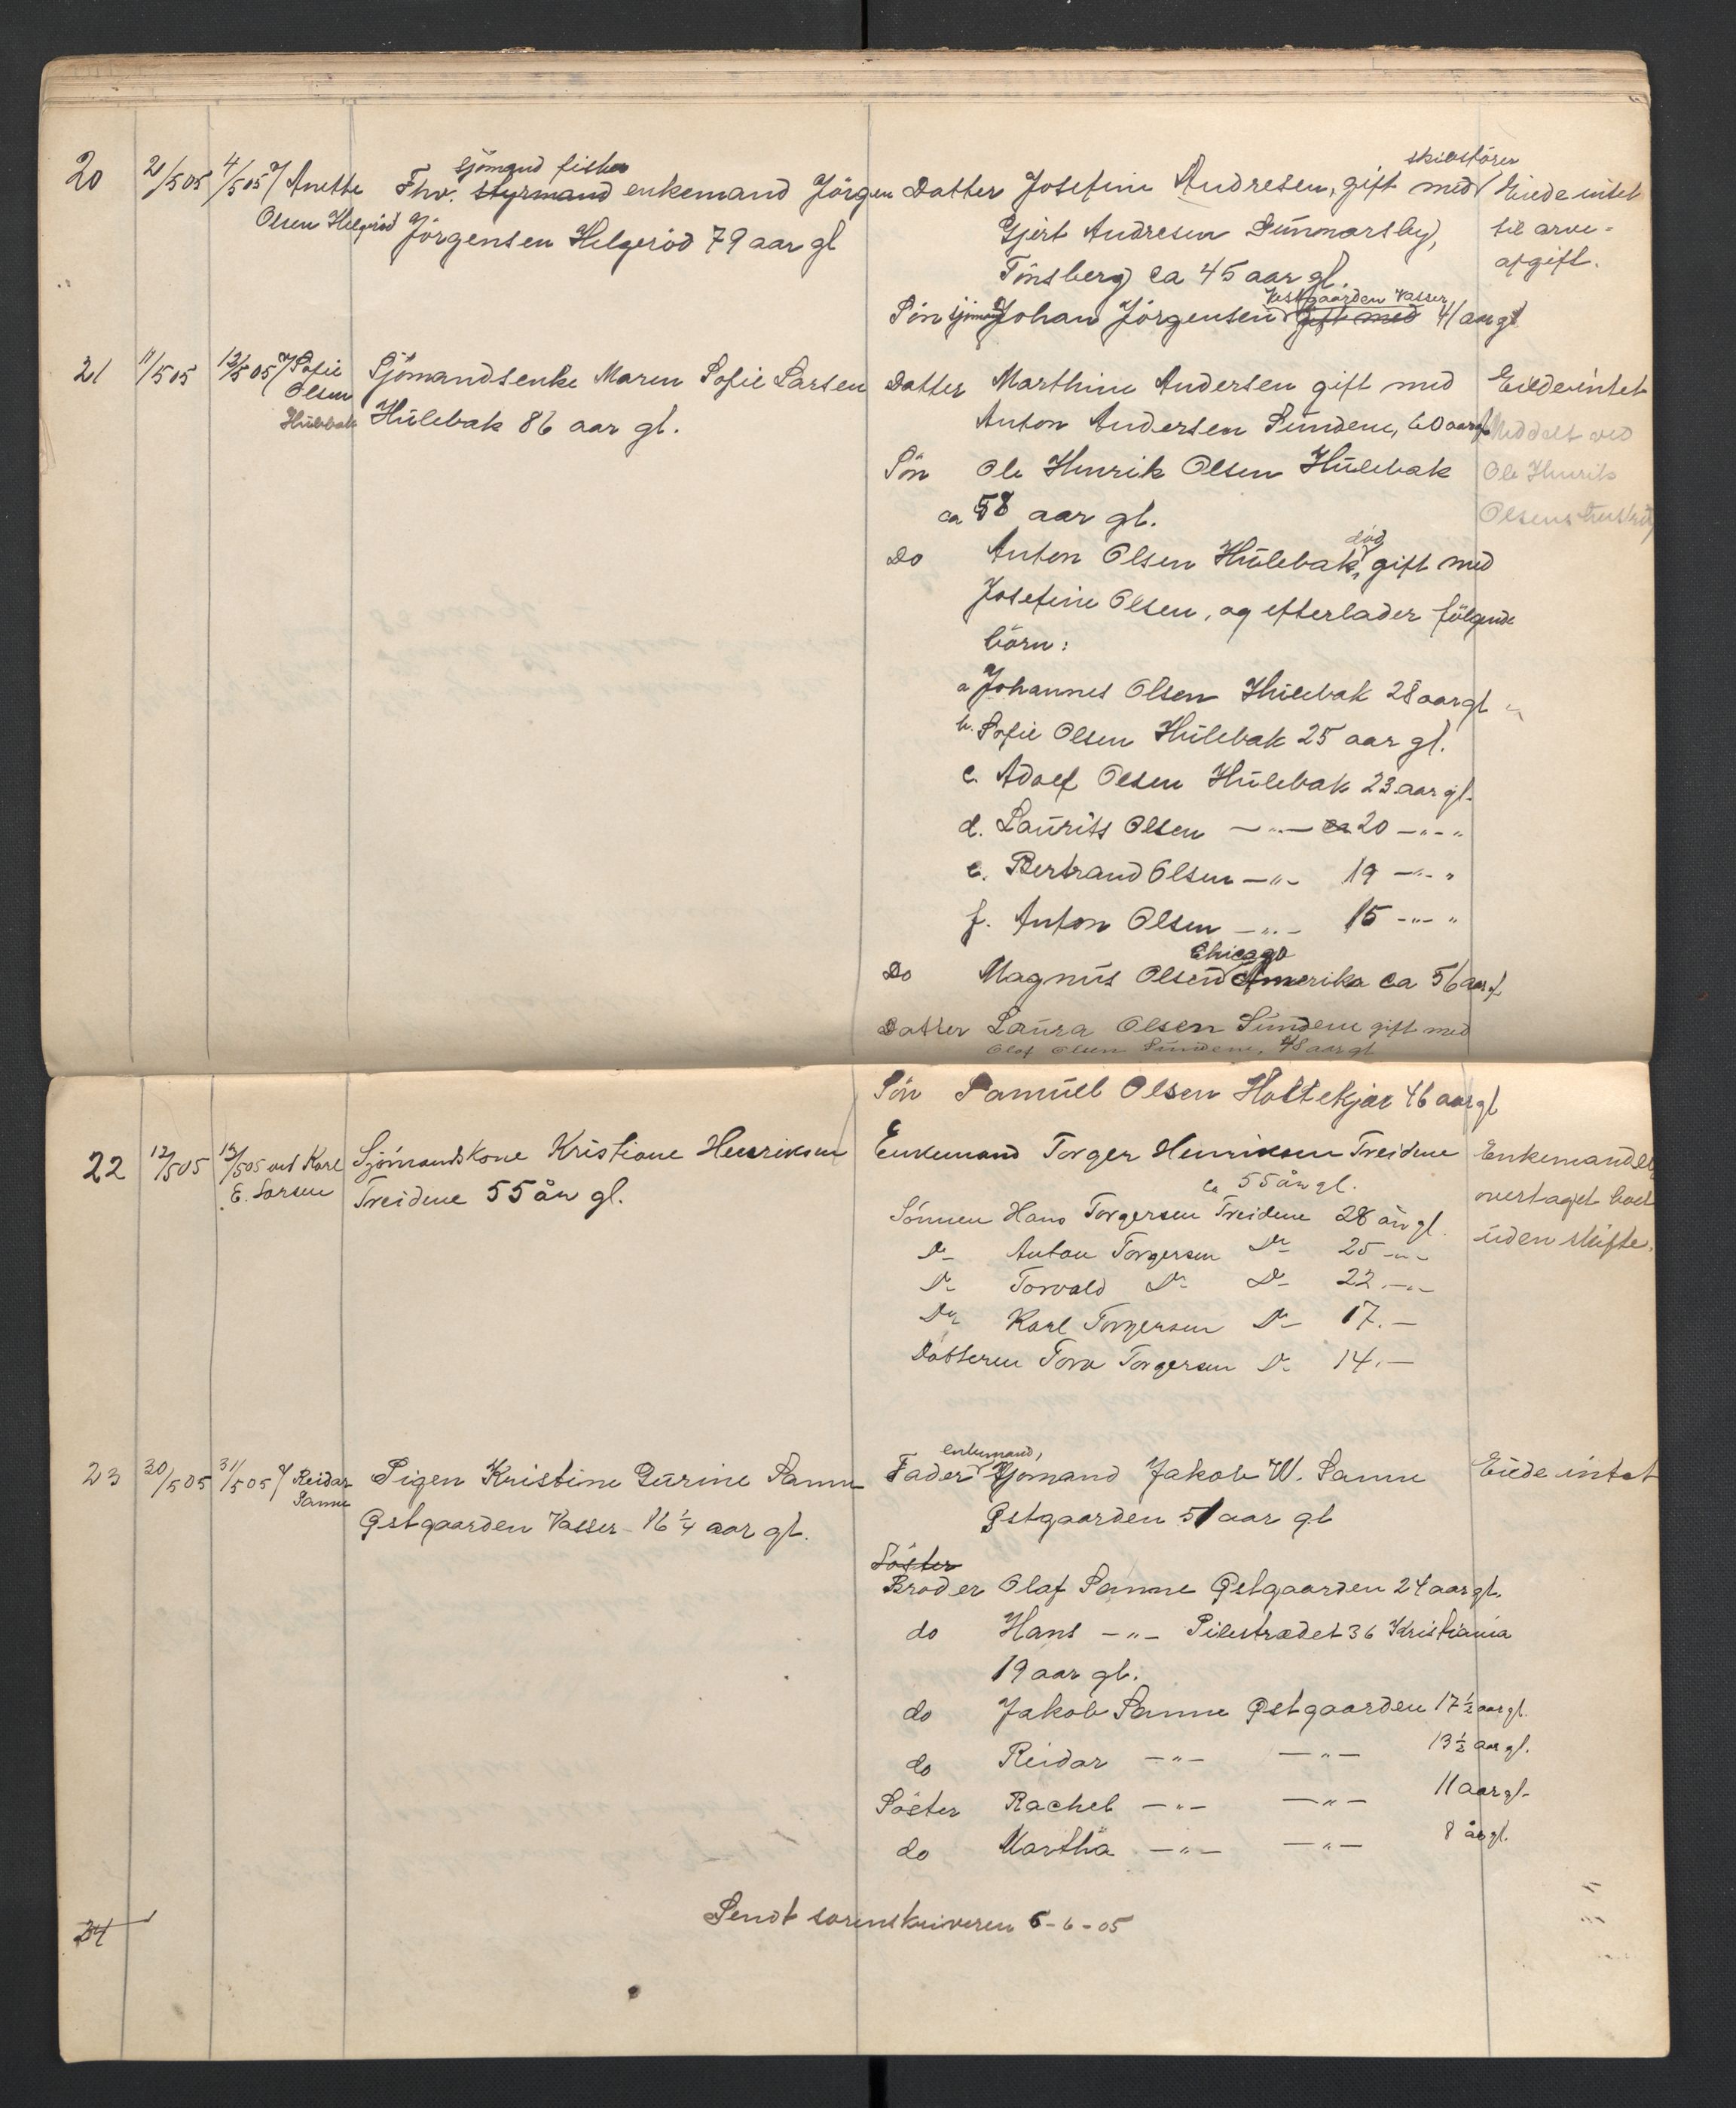 20 2/5 05 4/5 05 v/ Anette Olsen Helgeröd
sjömand fisker
Fhv. styrmand enkemand Jörgen
Jörgensen Helgeröd 79 aar gl
skibsförer
Datter Josefine Andresen, gift med
Gjert Andresen Sünmarsby,
Tönsberg ca 45 aar gl.
Vestgaarden Vasser
Sön sjömand Johan Jörgensen gift med 41 aar gl
Eiede intet
til arve-
afgift.
21 11/5 05 12/5 05 v/ Sofie
Olsen
Hülebak
Sjömandsenke Maren Sofie Larsen
Hülebak 86 aar gl.
Datter Marthine Andersen gift med
Anton Andersen Sündene, 60 aar gl
Sön Ole Henrik Olsen Hülebak
ca 58 aar gl.
död
Do Anton Olsen Hülebak, gift med
Josefine Olsen, og efterlader fölgende
börn:
a Johannes Olsen Hülebak 28 aar gl
b. Sofie Olsen Hülebak 25 aar gl.
c. Adolf Olsen Hülebak 23 aar gl.
d. Laürits Olsen —"— ca 20 —"— "
e. Bertrand Olsen —"— 19 —"— "
f. Anton Olsen —"— 15 —"— "
Chicago
Do Magnüs Olsen Amerika ca 56 aar gl
Datter Laüra Olsen Sündene gift med
Olaf Olsen Sündene, 48 aar gl
Eiede intet
Meddelt ved
Ole Henrik
Olsens hustru
Sön Samüel Olsen Holtekjær 46 aar gl
22 12/5 05 13/5 05 ved Karl
E. Larsen
Sjömandskone Kristiane Henriksen
Treidene 55 år gl.
Enkemand Torger Henriksen Treidene
ca 55 år gl.
Sönnen Hans Torgersen Treidene 28 år gl.
Do Anton Torgersen Do 25 —"—
Do Torvald Do Do 22 —"—
Do Karl Torgersen Do 17. —
Datteren Tora Torgersen Do 14. —
Enkemanden
overtaget boet
üden skifte.
23 30/5 05 31/5 05 v/ Reidar
Sanne
Pigen Kristine Gürine Sanne
Østgaarden Vasser 16 1/4 aar gl.
enkemand,
Fader Sjömand Jakob W. Sanne
Østgaarden 51 aar gl
Söster
Broder Olaf Sanne Østgaarden 24 aar gl.
do Hans —"— Pilestrædet 36 Kristiania
19 aar gl.
do Jakob Sanne Østgaarden 17 1/2 aar gl.
do Reidar —"— —"— 13 1/2 aar gl.
Söster Rachel —"— —"— 11 aar gl.
do Martha —"— —"— 8 år gl.
Eiede intet
Sendt sorenskriveren 5-6-05
24